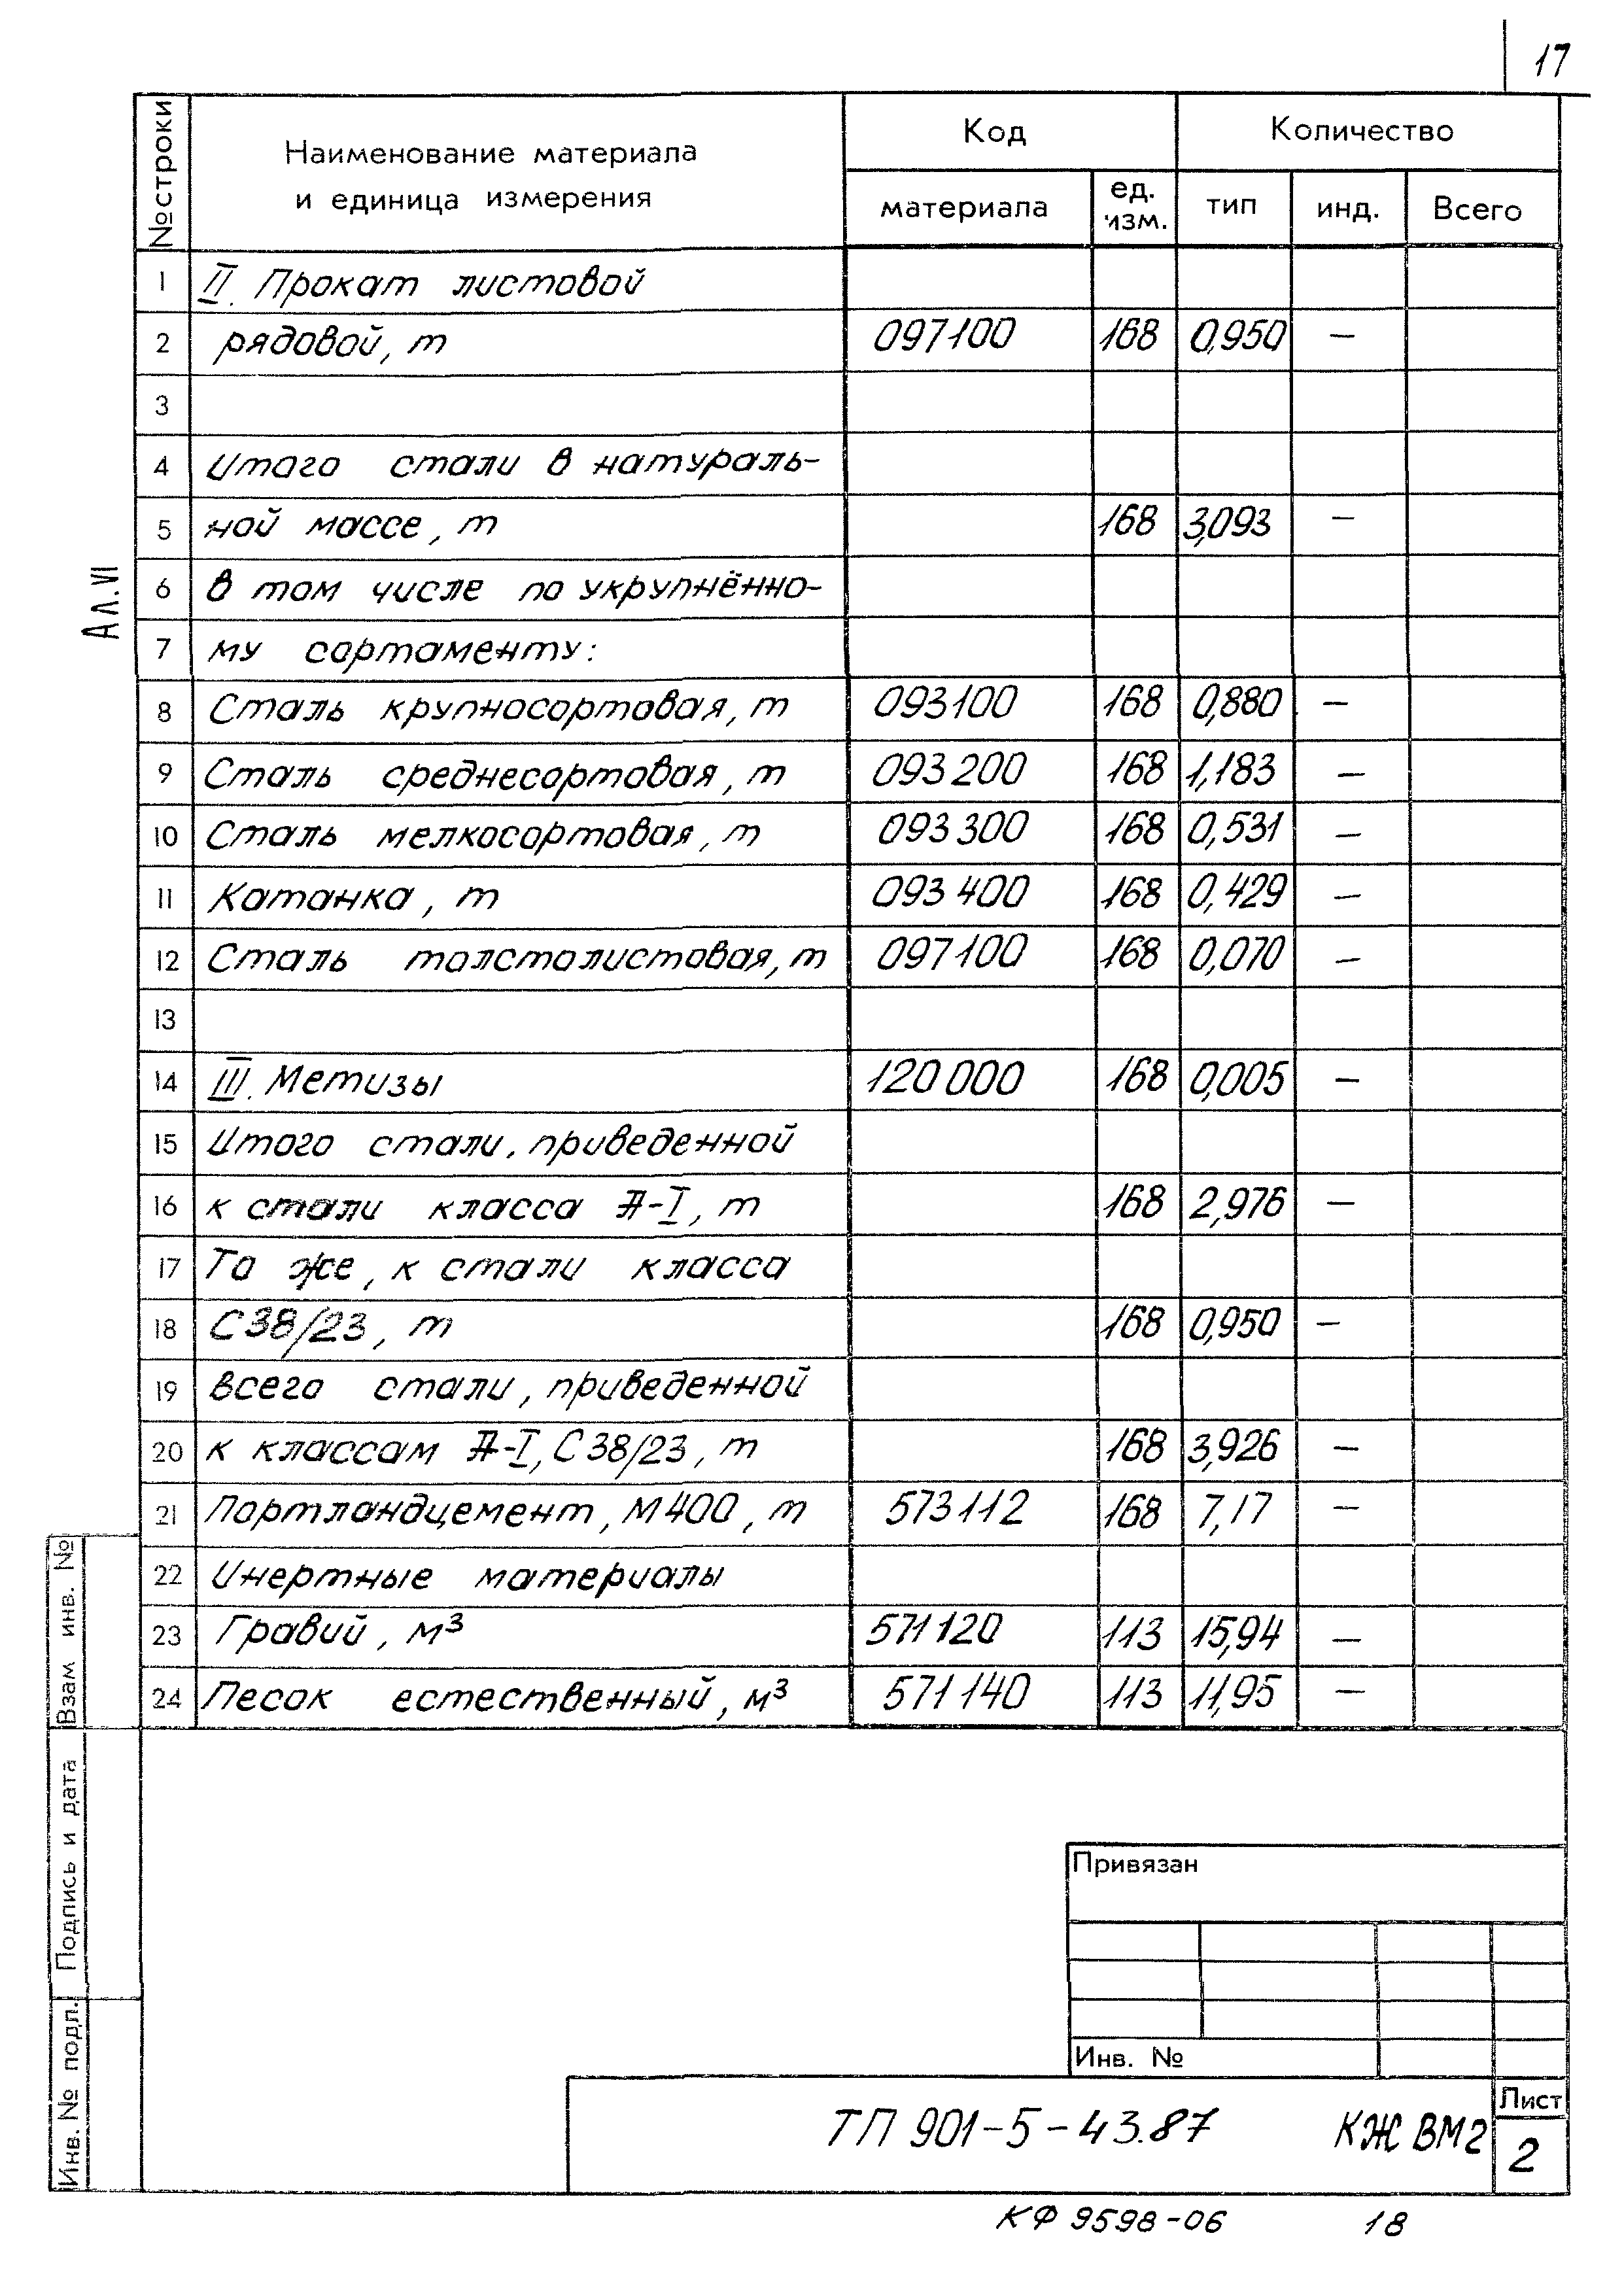 17
№ строки | Наименование материала и единица измерения | Код | Количество
материала | ед. изм. | тип | инд. | Всего
1 | II. Прокат листовой
2 | рядовой, т | 097100 | 168 | 0,950 | —
3
4 | Итого стали в натураль-
5 | ной массе, т | 168 | 3,093 | —
6 | в том числе по укрупнённо-
7 | му сортаменту:
8 | Сталь крупносортовая, т | 093100 | 168 | 0,880 | —
9 | Сталь среднесортовая, т | 093200 | 168 | 1,183 | —
10 | Сталь мелкосортовая, т | 093300 | 168 | 0,531 | —
11 | Катанка, т | 093400 | 168 | 0,429 | —
12 | Сталь толстолистовая, т | 097100 | 168 | 0,070 | —
13
14 | III. Метизы | 120000 | 168 | 0,005 | —
15 | Итого стали, приведенной
16 | к стали класса А-I, т | 168 | 2,976 | —
17 | То же, к стали класса
18 | С38/23, т | 168 | 0,950 | —
19 | всего стали, приведенной
20 | к классам А-I, С38/23, т | 168 | 3,926 | —
21 | Портландцемент, М400, т | 573112 | 168 | 7,17 | —
22 | Инертные материалы
23 | Гравий, м³ | 571120 | 113 | 15,94 | —
24 | Песок естественный, м³ | 571140 | 113 | 11,95 | —
Ал. VI
Взам инв. №
Подпись и дата
Инв. № подл.
Привязан
Инв. №
ТП 901-5-43.87 КЖ ВМ2
Лист
2
КФ 9598-06 18